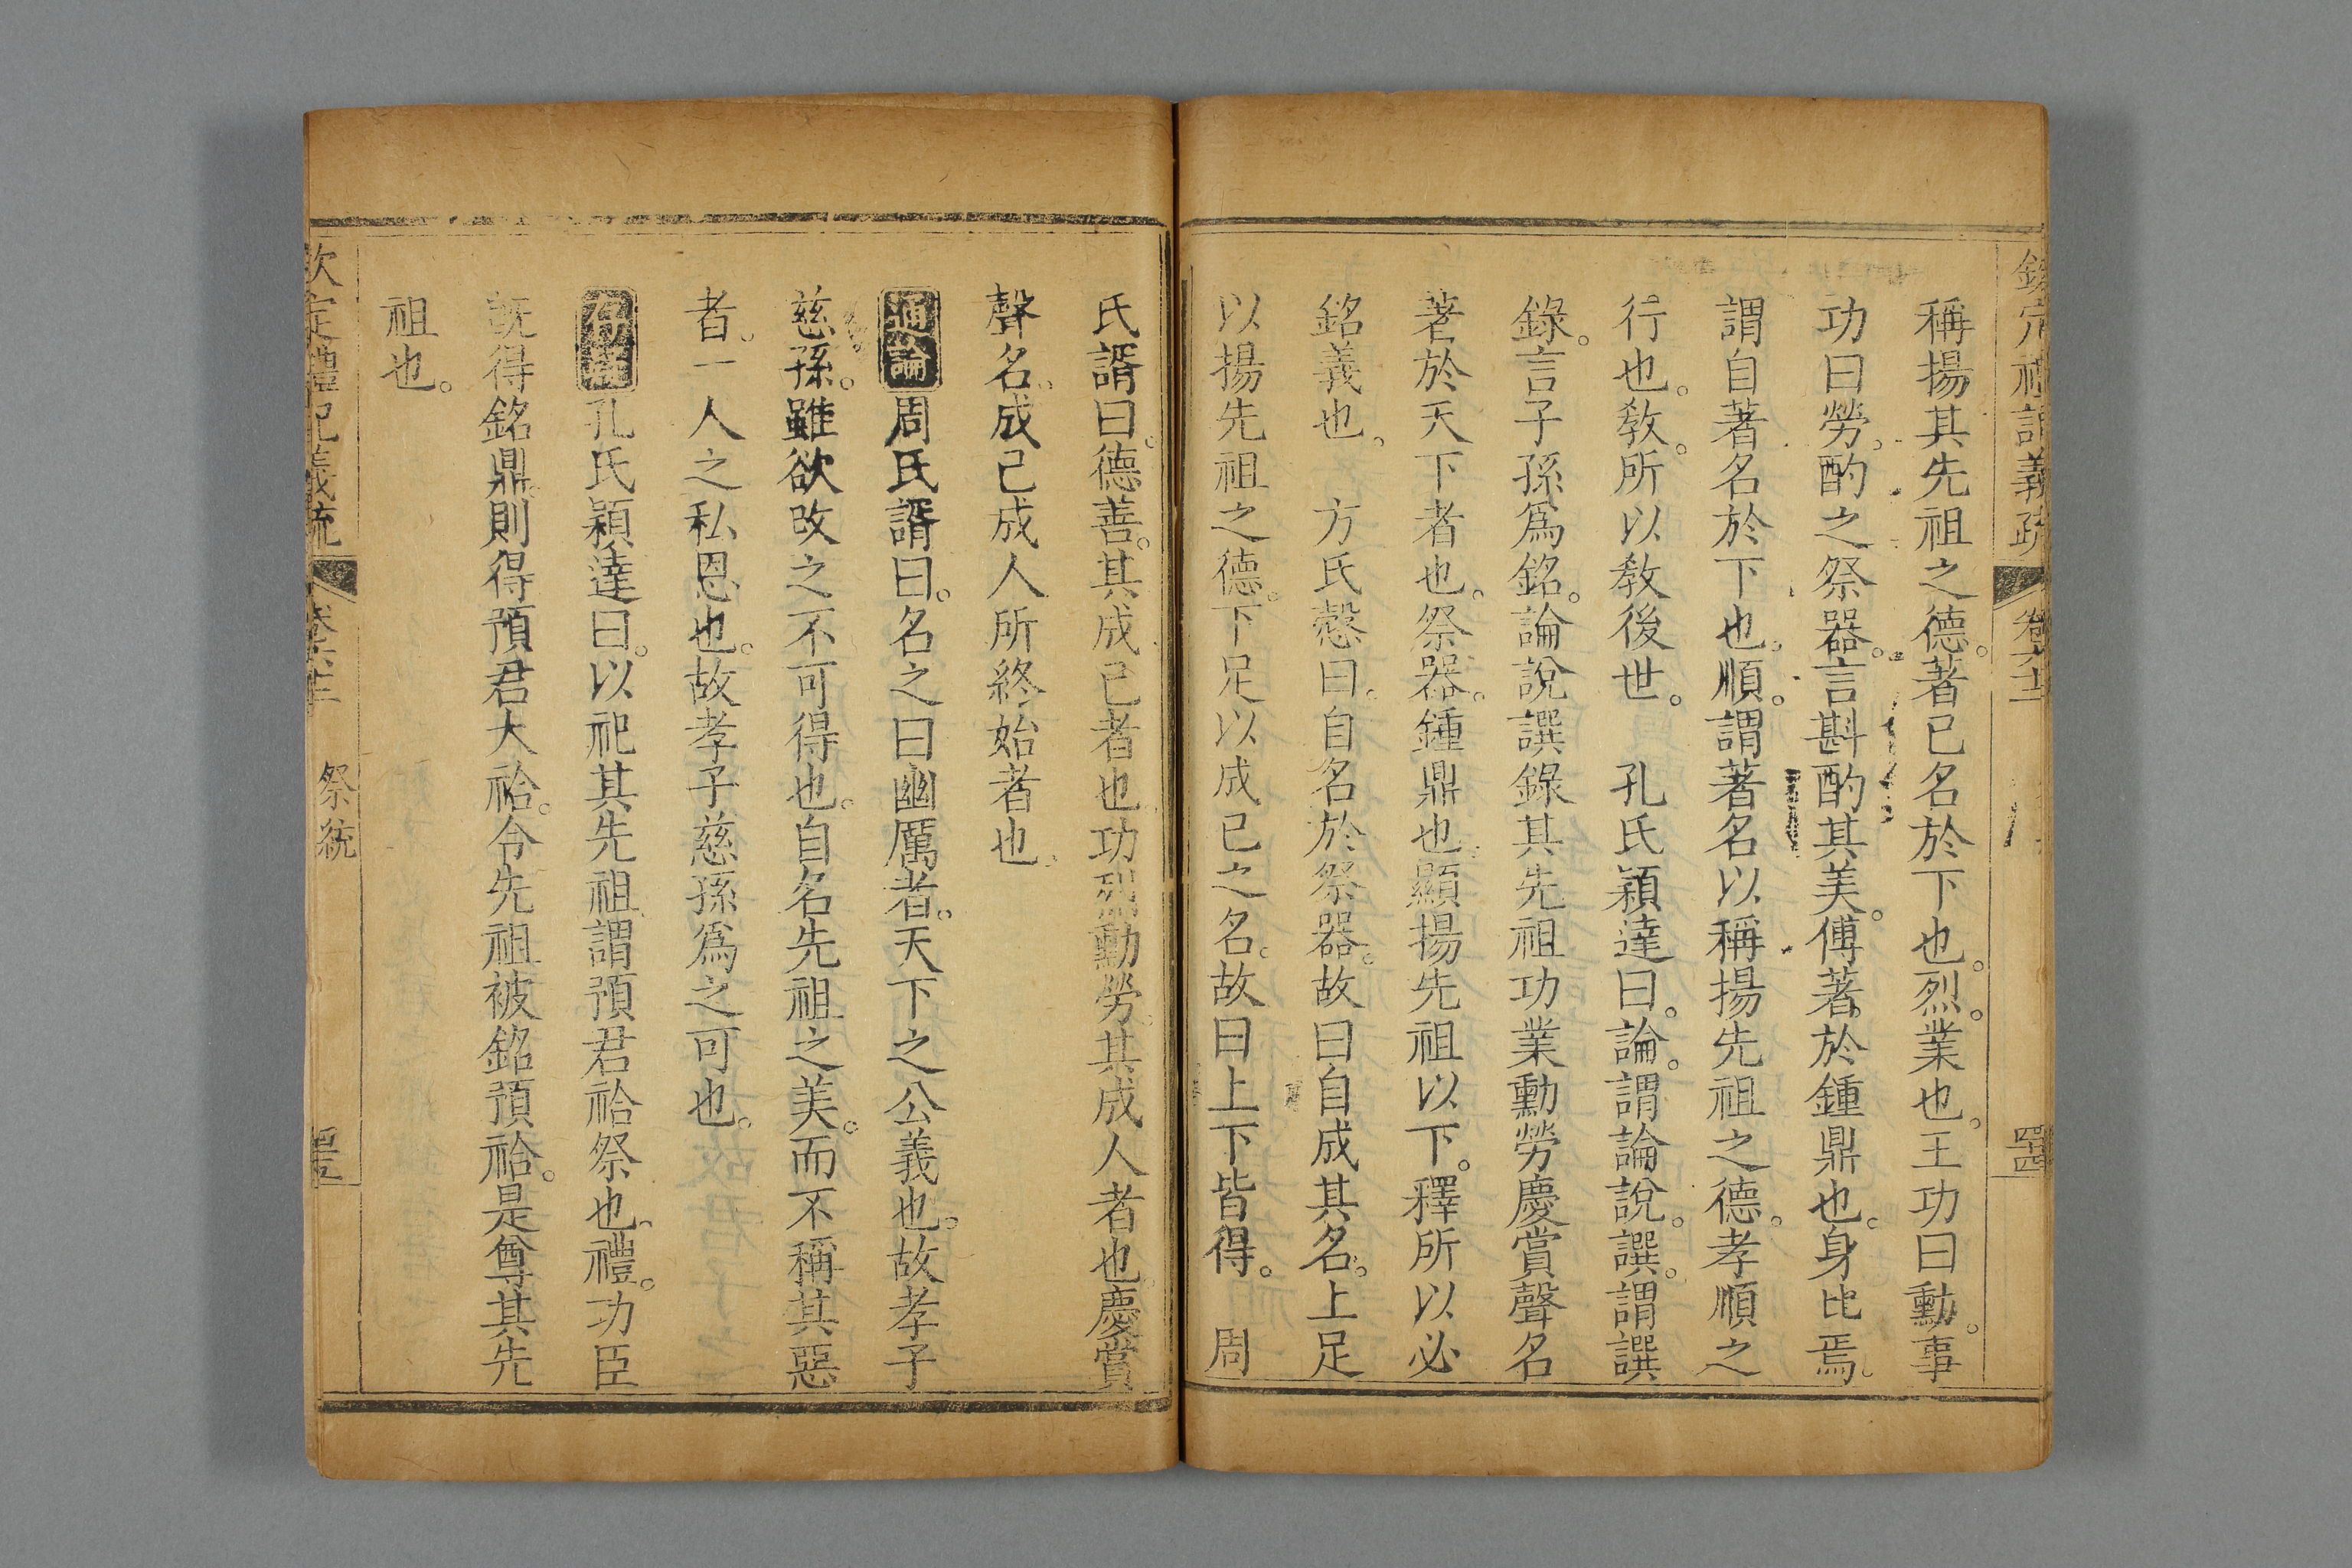 欽定禮記義疏 卷六十二 四十四
稱揚其先祖之德。著已名於下也。烈。業也。王功曰勳。事
功曰勞。酌之祭器。言斟酌其美。傅著於鍾鼎也。身比焉。
謂自著名於下也。順。謂著名以稱揚先祖之德。孝順之
行也。敎。所以敎後世。 孔氏穎達曰。論。謂論說。譔。謂譔
錄。言子孫爲銘。論說譔錄其先祖功業勳勞慶賞聲名
著於天下者也。祭器。鍾鼎也。顯揚先祖以下。釋所以必
銘義也。 方氏慤曰。自名於祭器。故曰自成其名。上足
以揚先祖之德。下足以成已之名。故曰上下皆得。 周
氏諝曰。德善。其成已者也。功烈勳勞。其成人者也。慶賞
聲名。成已成人所終始者也。
通論周氏諝曰。名之曰幽厲者。天下之公義也。故孝子
慈孫。雖欲改之不可得也。自名先祖之美。而不稱其惡
者。一人之私恩也。故孝子慈孫爲之可也。
存疑孔氏穎達曰。以祀其先祖謂預君祫祭也。禮。功臣
旣得銘鼎。則得預君大祫。令先祖被銘預祫。是尊其先
祖也。
欽定禮記義疏 卷六十二 祭統 四十五